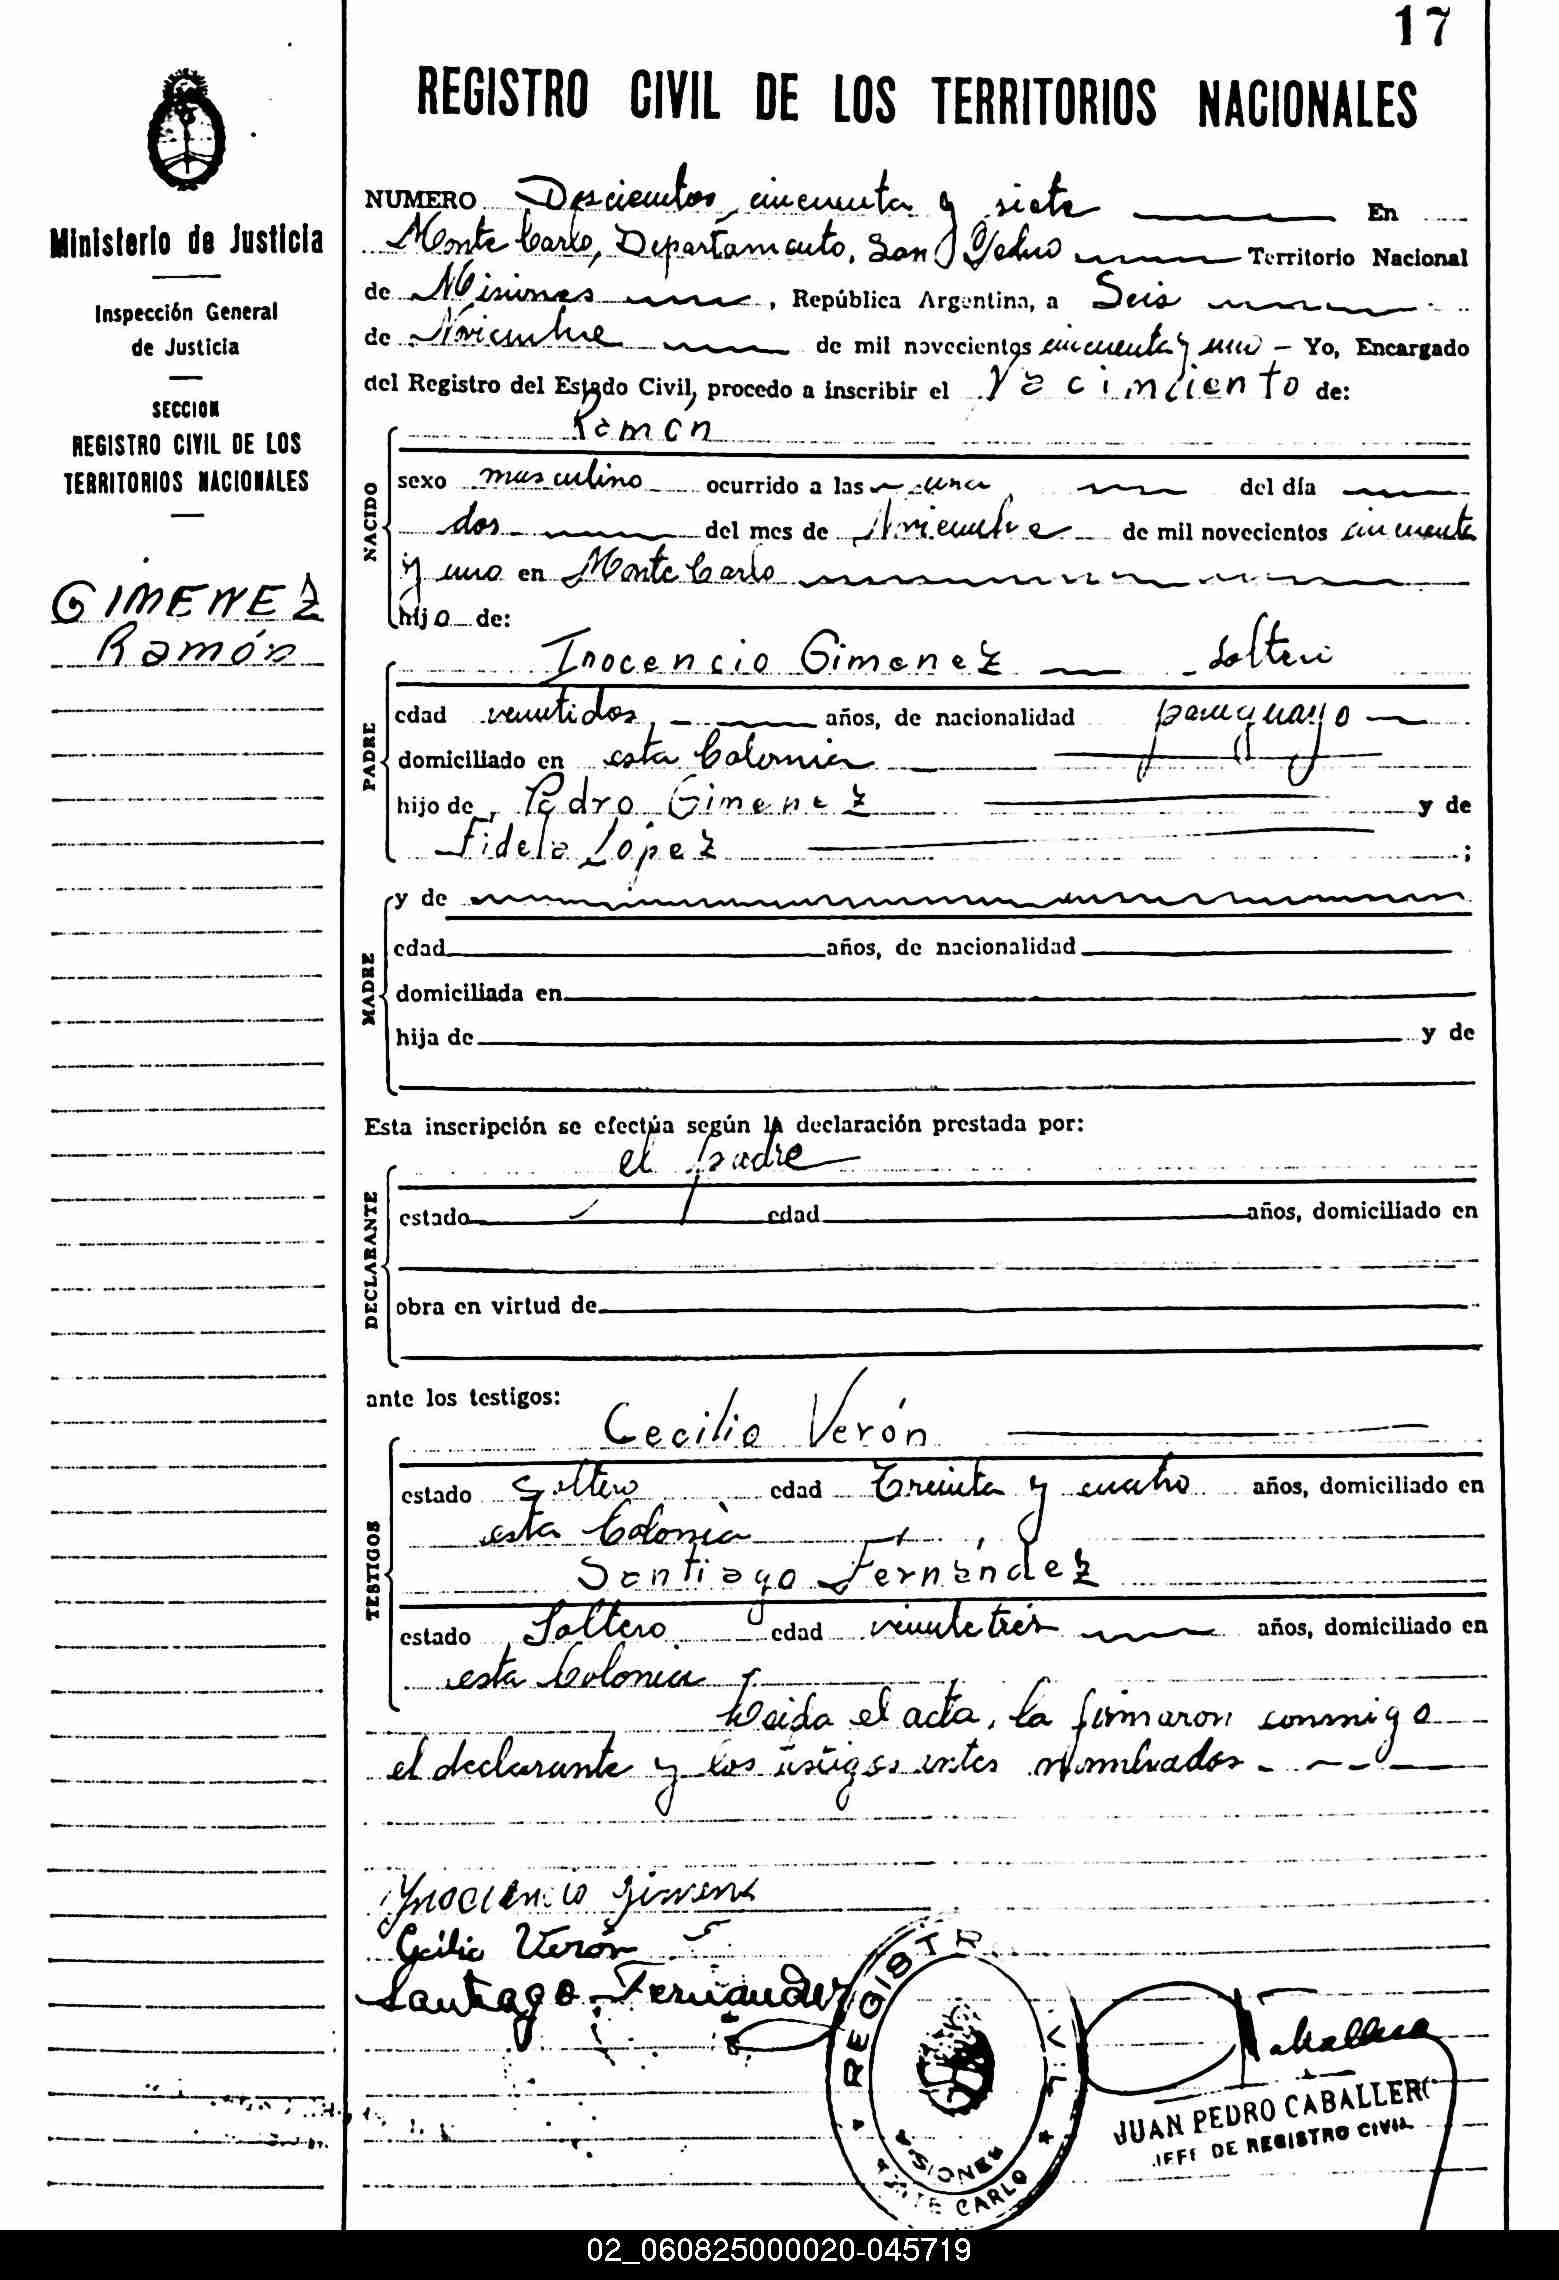 17
REGISTRO CIVIL DE LOS TERRITORIOS NACIONALES
Ministerio de Justicia
Inspección General
de Justicia
SECCION
REGISTRO CIVIL DE LOS
TERRITORIOS NACIONALES
GIMENEZ
Ramón
NUMERO Doscientos cincuenta y siete En
Monte Carlo, Departamento, San Pedro Territorio Nacional
de Misiones, República Argentina, a Seis
de Noviembre de mil novecientos cincuenta y uno - Yo, Encargado
del Registro del Estado Civil, procedo a inscribir el Nacimiento de:
Ramón
NACIDO
sexo masculino ocurrido a las una del día
dos del mes de Noviembre de mil novecientos cincuenta
y uno en Monte Carlo
hijo de:
Inocencio Gimenez soltero
PADRE
edad veintidos, años, de nacionalidad paraguayo
domiciliado en esta Colonia
hijo de Pedro Gimenez y de
Fidela López ;
MADRE
y de
edad años, de nacionalidad
domiciliada en
hija de y de
Esta inscripción se efectúa según la declaración prestada por:
el padre
DECLARANTE
estado edad años, domiciliado en
obra en virtud de
ante los testigos:
Cecilio Verón
TESTIGOS
estado Soltero edad Treinta y cuatro años, domiciliado en
esta Colonia
Santiago Fernández
estado Soltero edad veintetrés años, domiciliado en
esta Colonia
Leida el acta, la firmaron conmigo
el declarante y los testigos antes nombrados
Ynocencio Gimenez
Cecilio Verón
Santiago Fernandez
Caballero
REGISTR IVIL
MISIONES
MONTE CARLO
JUAN PEDRO CABALLERO
JEFE DE REGISTRO CIVIL
02_060825000020-045719